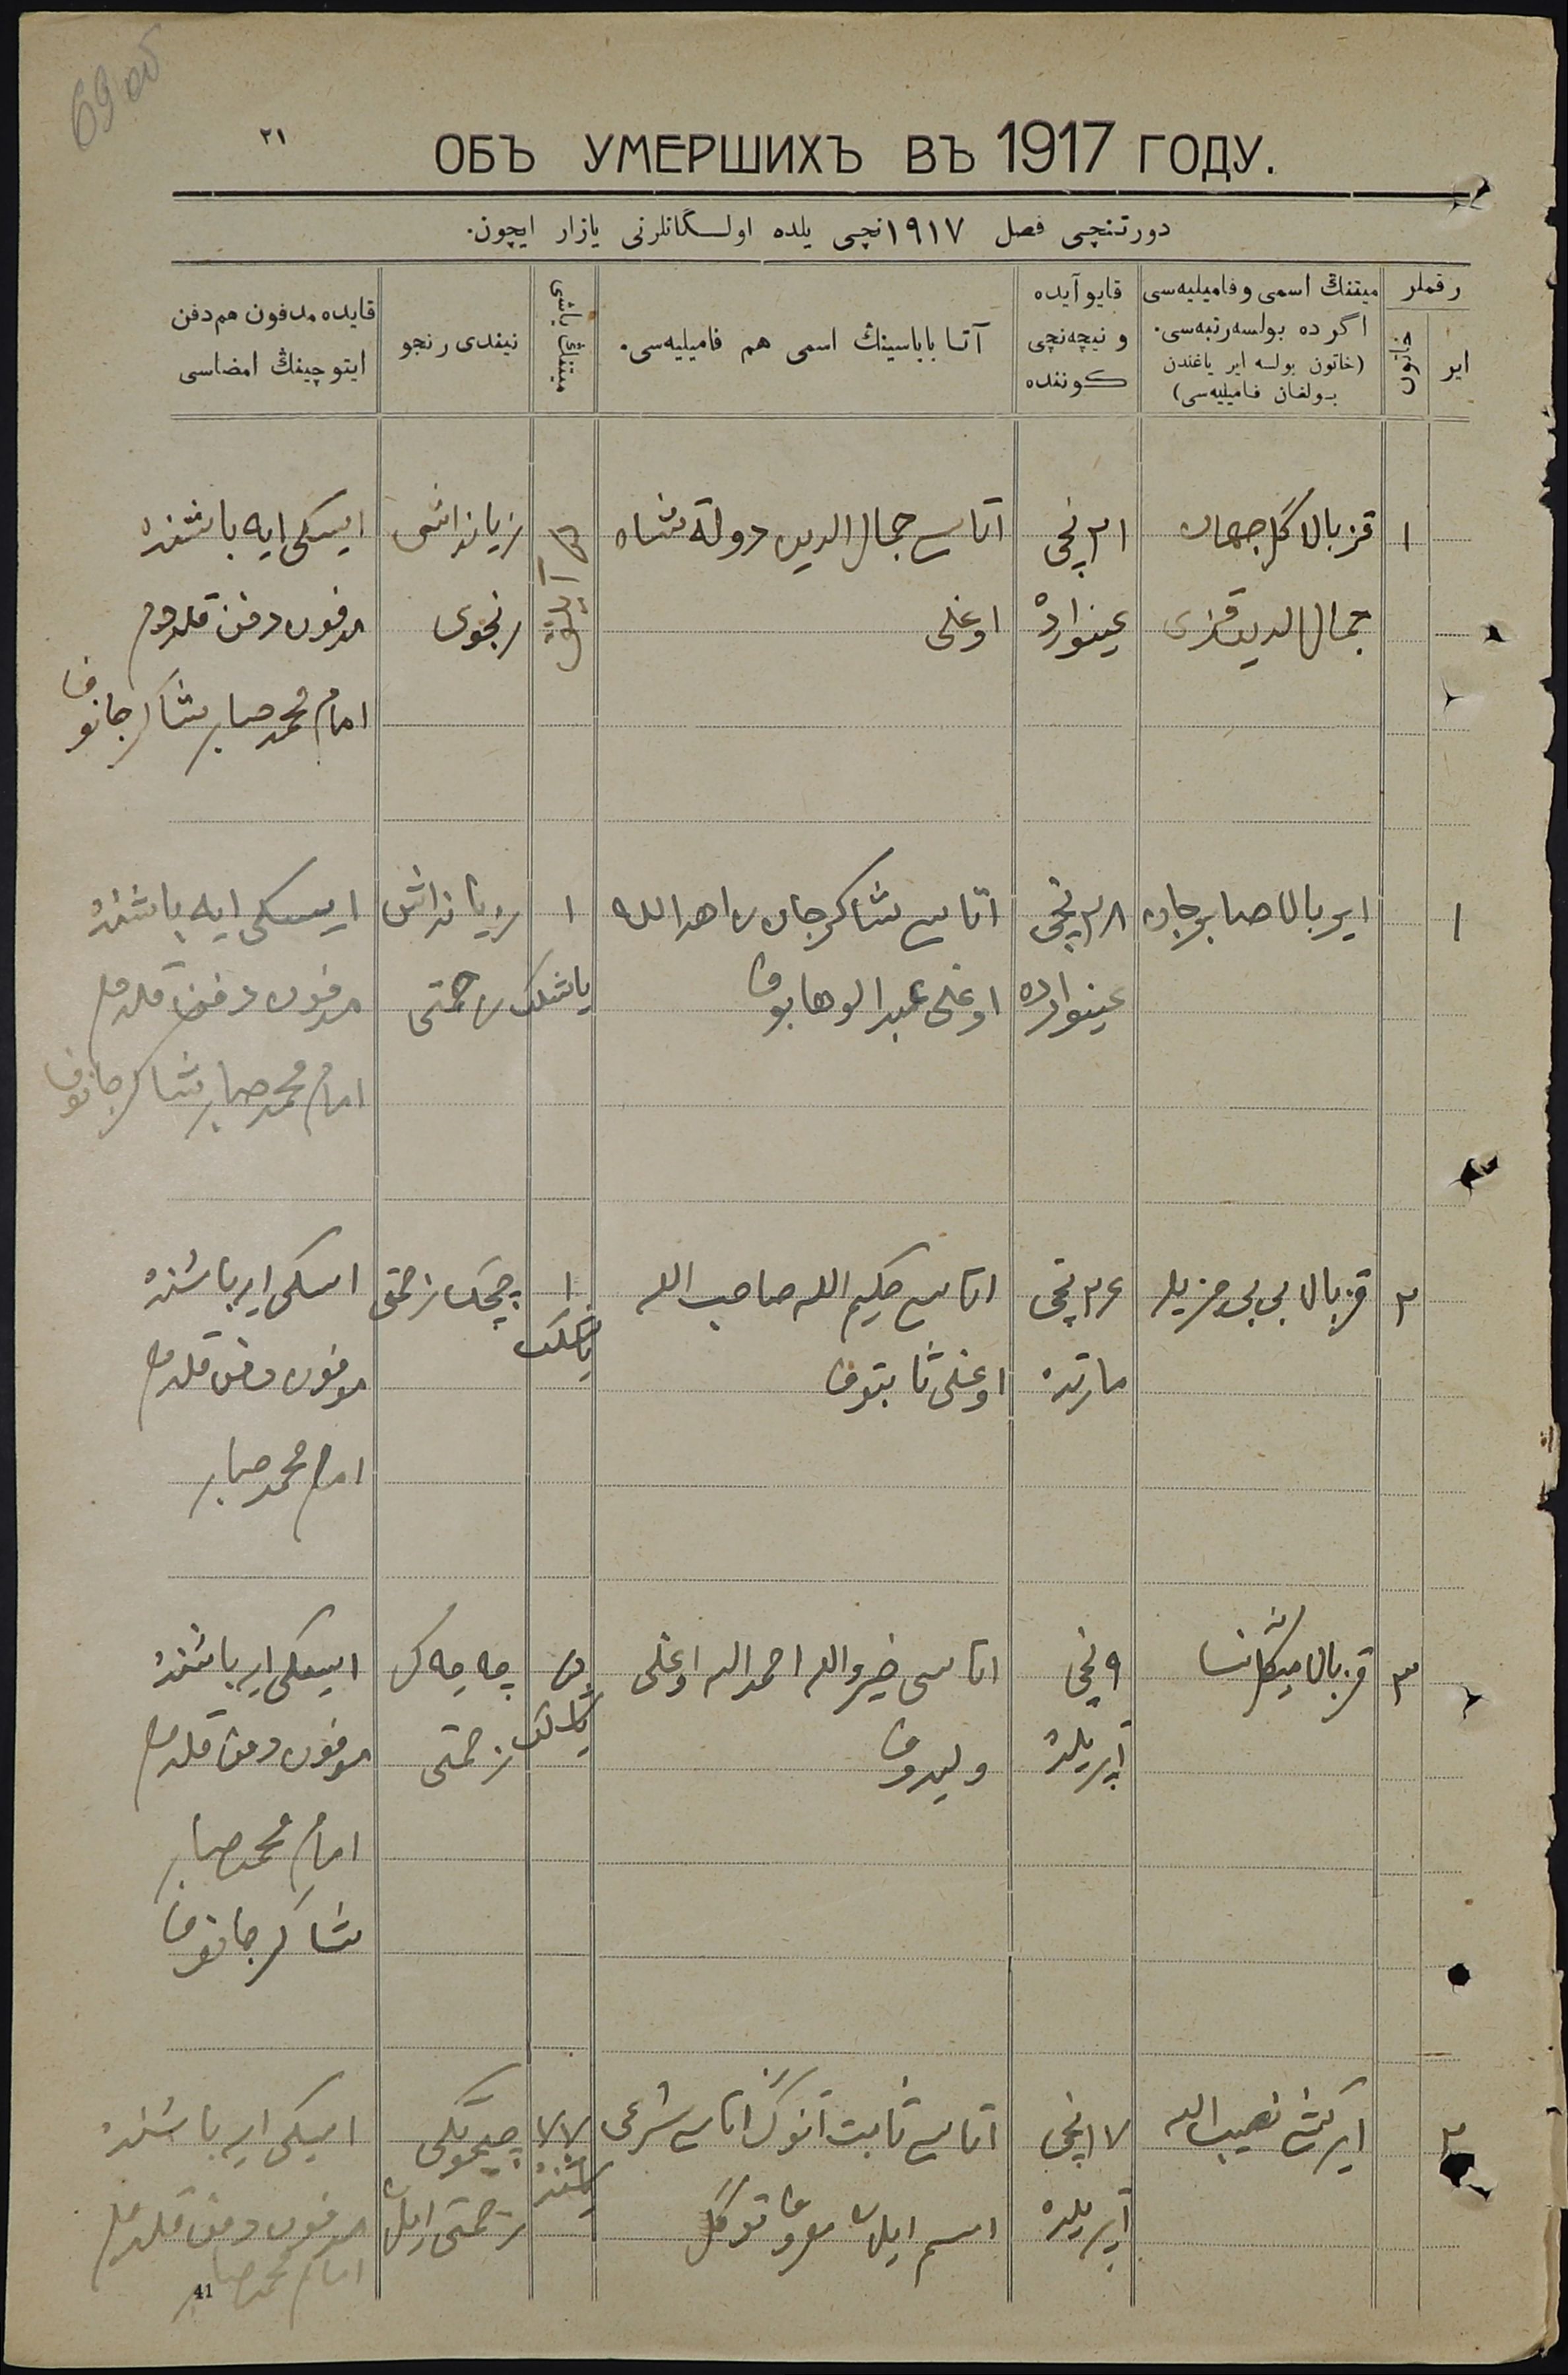 69 об
٢١
ОБЪ УМЕРШИХЪ ВЪ 1917 ГОДУ.
دورتنچی فصل ١٩١٧نچی یلده اولگانلرنی یازار ایچون.
رقملر
ایر
خاتون
میتنڭ اسمی و فامیلیه‌سی
اگرده بولسه رتبه‌سی.
(خاتون بولسه ایر یاغندن
بولغان فامیلیه‌سی)
قایو آیده
و نیچه‌نچی
کوننده
آتا باباسینڭ اسمی هم فامیلیه‌سی.
میتنڭ یاشی
نیندی رنجو
قایده مدفون هم دفن
ایتوچینڭ امضاسی
١
قز بالا گلجهان
جمال الدین قزی
٢١ نچی
غینوارده
اتاسی جمال الدین دولةشاه
اوغلی
زیانداشی
رنجوی
ایسکی ایه باشنده
مدفون دفن قلدم
امام محمد صابر شاکرجانوف
١
ایر بالا صابرجان
٢٨ نچی
غینوارده
اتاسی شاکرجان زاهدالله
اوغلی عبدالوهابوف
١
یاشلک
زیانداش
زحمتی
ایسکی ایه باشنده
مدفون دفن قلدم
امام محمد صابر شاکرجانوف
٢
قز بالا بی بی
٢٤ نچی
مارتده
اتاسی حکیم الله صاحب الله
اوغلی ثابتوف
١
یاشلک
چچک زحمتی
اسکی ایه باشنده
مدفون دفن قلدم
امام محمد صابر
٣
قز بالا
٩ نچی
آپریلده
اتاسی خیرالله احمدالله اوغلی
ولیدوف
یاشلک
چه چه ک
زحمتی
ایسکی ایه باشنده
مدفون دفن قلدم
امام محمد صابر
شاکرجانوف
٢
ایرکشی نصیب الله
١٧ نچی
آپریلده
اتاسی ثابت آنوڭ اتاسی شرعی
اسم ایله معروف توگل
٧٧
یاشنده
زحمتی ایله
ایسکی ایه باشنده
مدفون دفن قلدم
امام محمد صابر
41